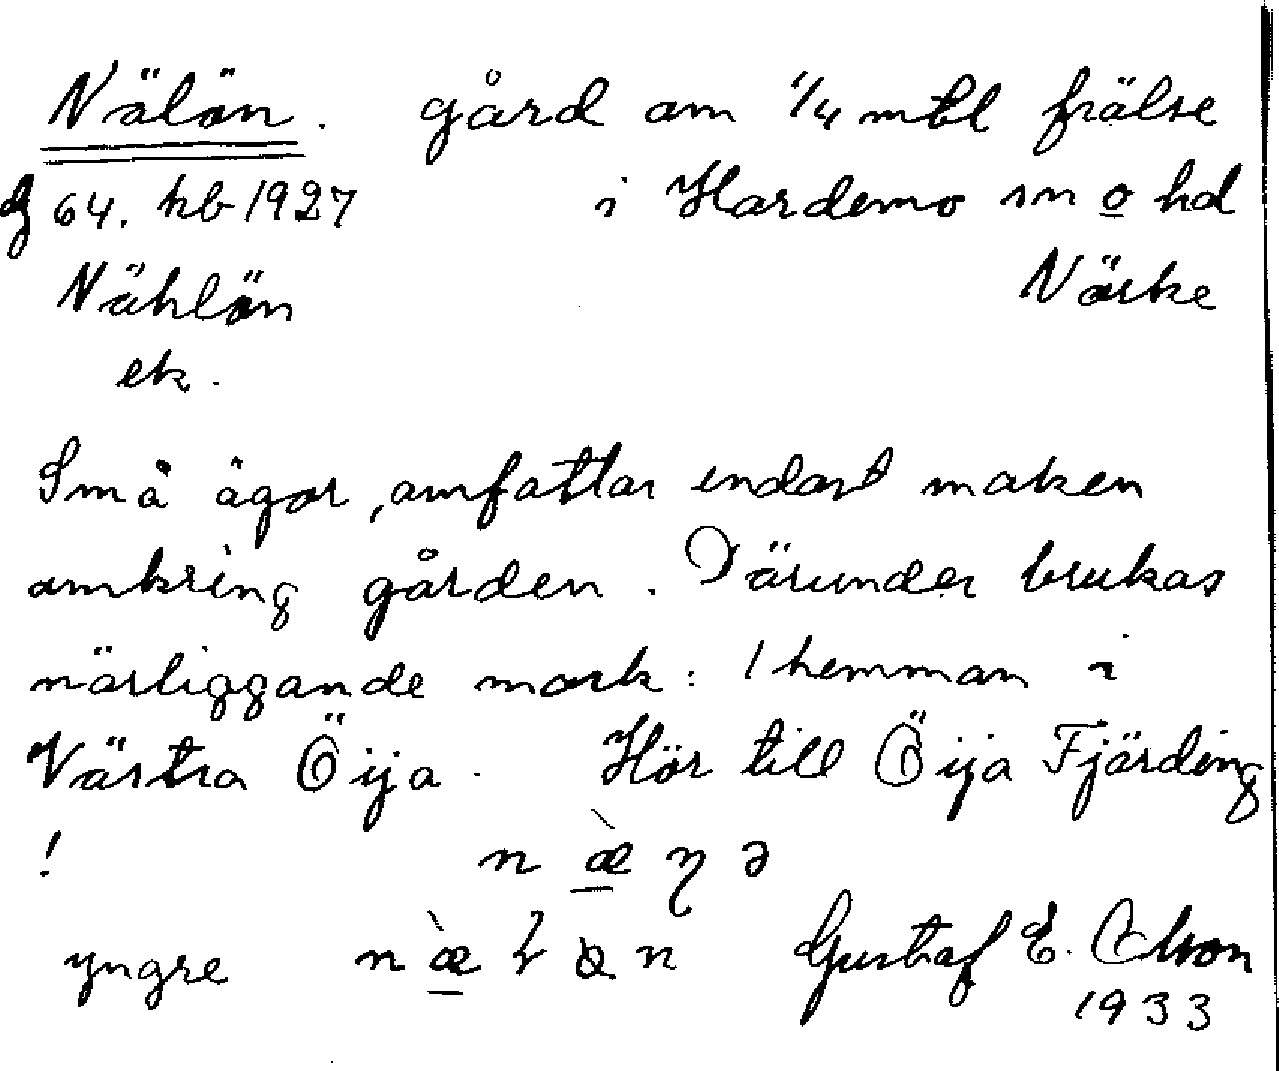 Nälön. gård om 1/4 mtl frälse
64. hb 1927 i Hardemo sn o hd
Nählön Närke
ek.
Små ägor, omfattar endast marken
omkring gården. Därunder brukas
närliggande mark: 1 hemman i
Västra Öija. Hör till Öija Fjärding
! n æ̀ η ə
yngre Gustaf E. Olson
1933